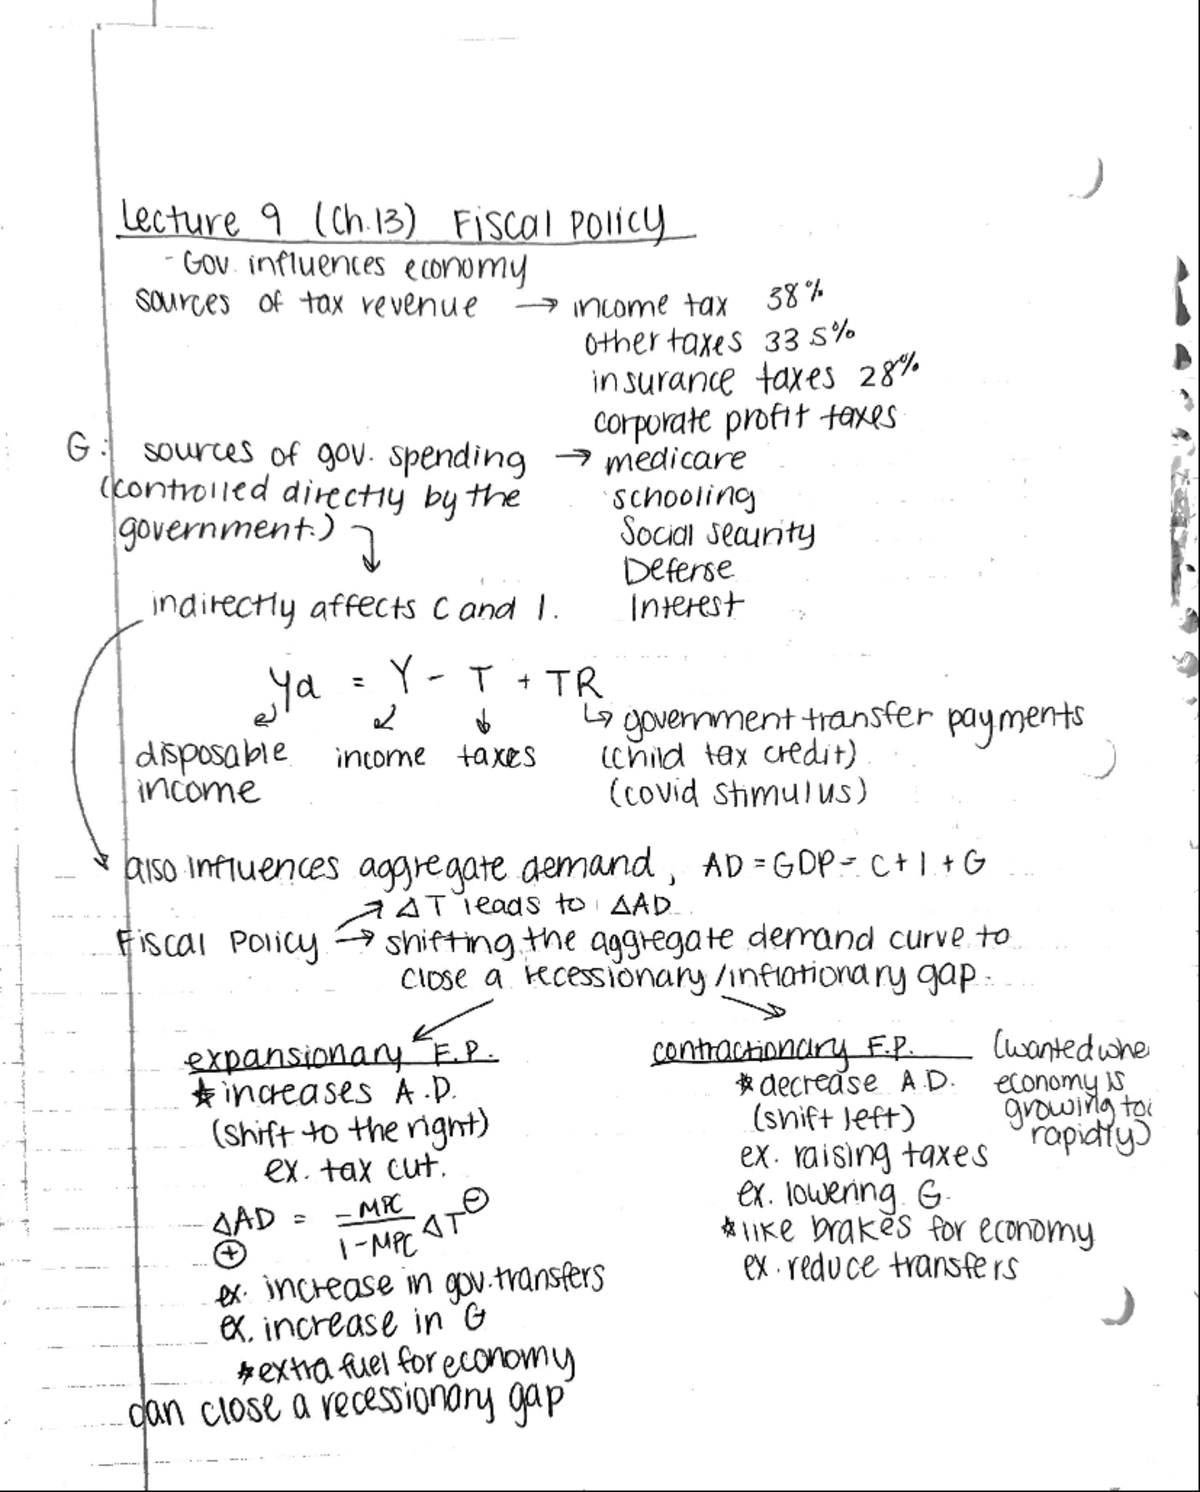 Lecture 9 (Ch.13) Fiscal Policy
- Gov. influences economy
sources of tax revenue → income tax 38%
other taxes 33.5%
insurance taxes 28%
corporate profit taxes
G: sources of gov. spending → medicare
(controlled directly by the schooling
government.) Social security
Defense
indirectly affects C and I. Interest
Yd = Y - T + TR
↳ government transfer payments
disposable income taxes (child tax credit)
income (covid stimulus)
also influences aggregate demand, AD = GDP = C + I + G
↗ ΔT leads to ΔAD
Fiscal Policy → shifting the aggregate demand curve to
close a recessionary/inflationary gap.
expansionary F.P. contractionary F.P. (wanted whe
★ increases A.D. ★ decrease A.D. economy is
(shift to the right) (shift left) growing too
ex. tax cut. ex. raising taxes rapidly)
ΔAD = -MPC / 1-MPC ΔT ⊖ ex. lowering G.
⊕ ★ like brakes for economy
ex. increase in gov. transfers ex. reduce transfers
ex. increase in G
★ extra fuel for economy
can close a recessionary gap